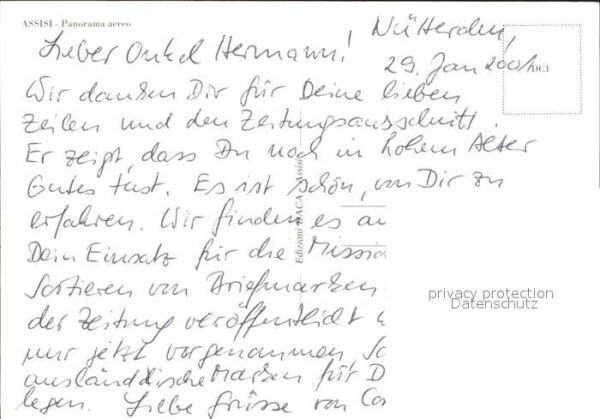 ASSISI - Panorama aereo
Nütterden,
Lieber Onkel Hermann!
29. Jan 2001
DCI
Wir danken Dir für Deine lieben
Zeilen und den Zeitungsausschnitt.
Er zeigt, dass Du noch in hohem Alter
Gutes tust. Es ist schön, von Dir zu
erfahren. Wir finden es
Dein Einsatz für die Missio
Sortieren von Briefmarken
der Zeitung veröffentlicht
nur jetzt vorgenommen,
ausländische Marken für D
legen. Liebe Grüsse von
Edizioni DACA - Assisi
privacy protection
Datenschutz